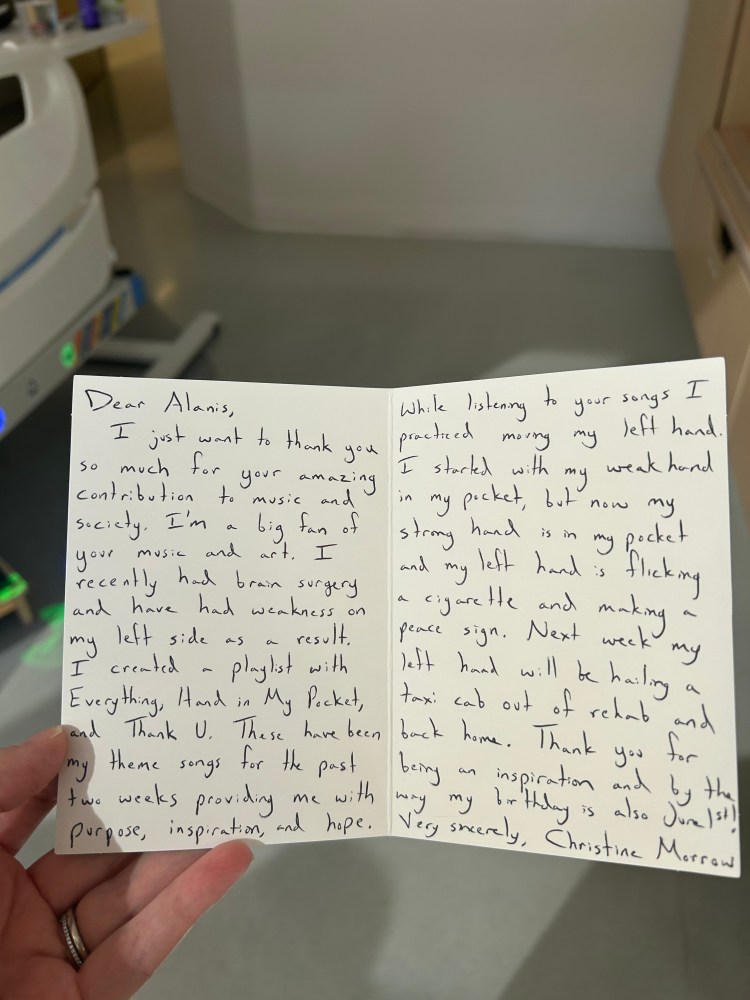 Dear Alanis,
I just want to thank you
so much for your amazing
contribution to music and
society. I'm a big fan of
your music and art. I
recently had brain surgery
and have had weakness on
my left side as a result.
I created a playlist with
Everything, Hand in My Pocket,
and Thank U. These have been
my theme songs for the past
two weeks providing me with
purpose, inspiration, and hope.
While listening to your songs I
practiced moving my left hand.
I started with my weak hand
in my pocket, but now my
strong hand is in my pocket
and my left hand is flicking
a cigarette and making a
peace sign. Next week my
left hand will be hailing a
taxi cab out of rehab and
back home. Thank you for
being an inspiration and by the
way my birthday is also June 1st!
Very sincerely, Christine Morrow